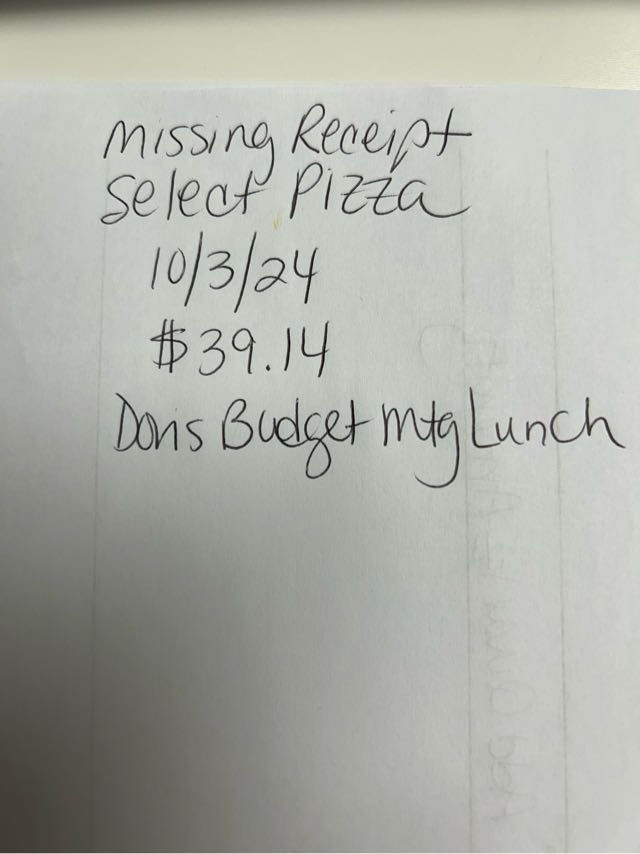 Missing Receipt
Select Pizza
10/3/24
$39.14
Budget Mtg Lunch